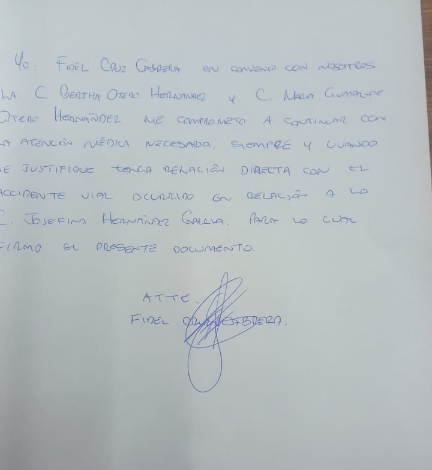 Yo. Fidel Cruz Cabrera en convenio con nosotros
LA C BERTHA OTERO HERNÁNDEZ Y C. GUADALUPE
OTERO HERNÁNDEZ ME COMPROMETO A CONTINUAR CON
LA ATENCIÓN MÉDICA NECESARIA, SIEMPRE Y CUANDO
SE JUSTIFIQUE TENGA RELACIÓN DIRECTA CON EL
ACCIDENTE VIAL OCURRIDO EN RELACIÓN A LA
C. JOSEFINA HERNÁNDEZ GARCÍA. PARA LO CUAL
FIRMO EL PRESENTE DOCUMENTO.
ATTE.
FIDEL CRUZ CABRERA.